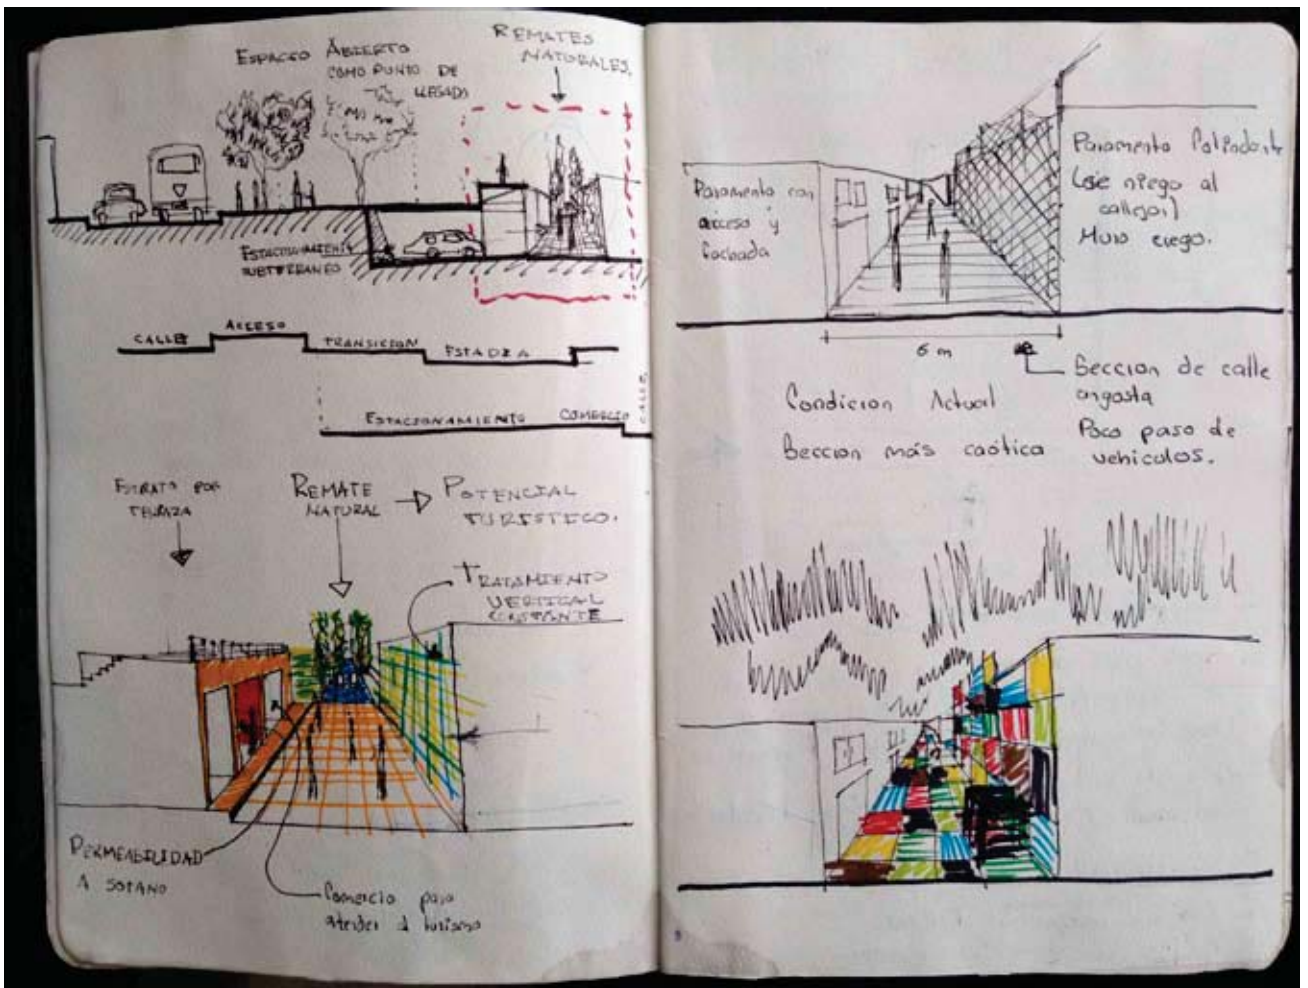 ESPACIO ABIERTO
COMO PUNTO DE
LLEGADA
REMATES
NATURALES.
ESTACIONAMIENTO
SUBTERRANEO
CALLE
ACCESO
TRANSICION
ESTADIA
ESTACIONAMIENTO
COMERCIO
CALLE
ESTRATO POR
TERRAZA
REMATE
NATURAL
POTENCIAL
TURISTICO.
TRATAMIENTO
VERTICAL
CONSTANTE
PERMEABILIDAD
A SOTANO
Comercio para
atender al turismo
Paramento con
acceso y
fachada
Paramento Colindante
(se niega al
callejon)
Muro ciego.
6 m
Seccion de calle
angosta
Poco paso de
vehiculos.
Condicion Actual
Seccion más caótica